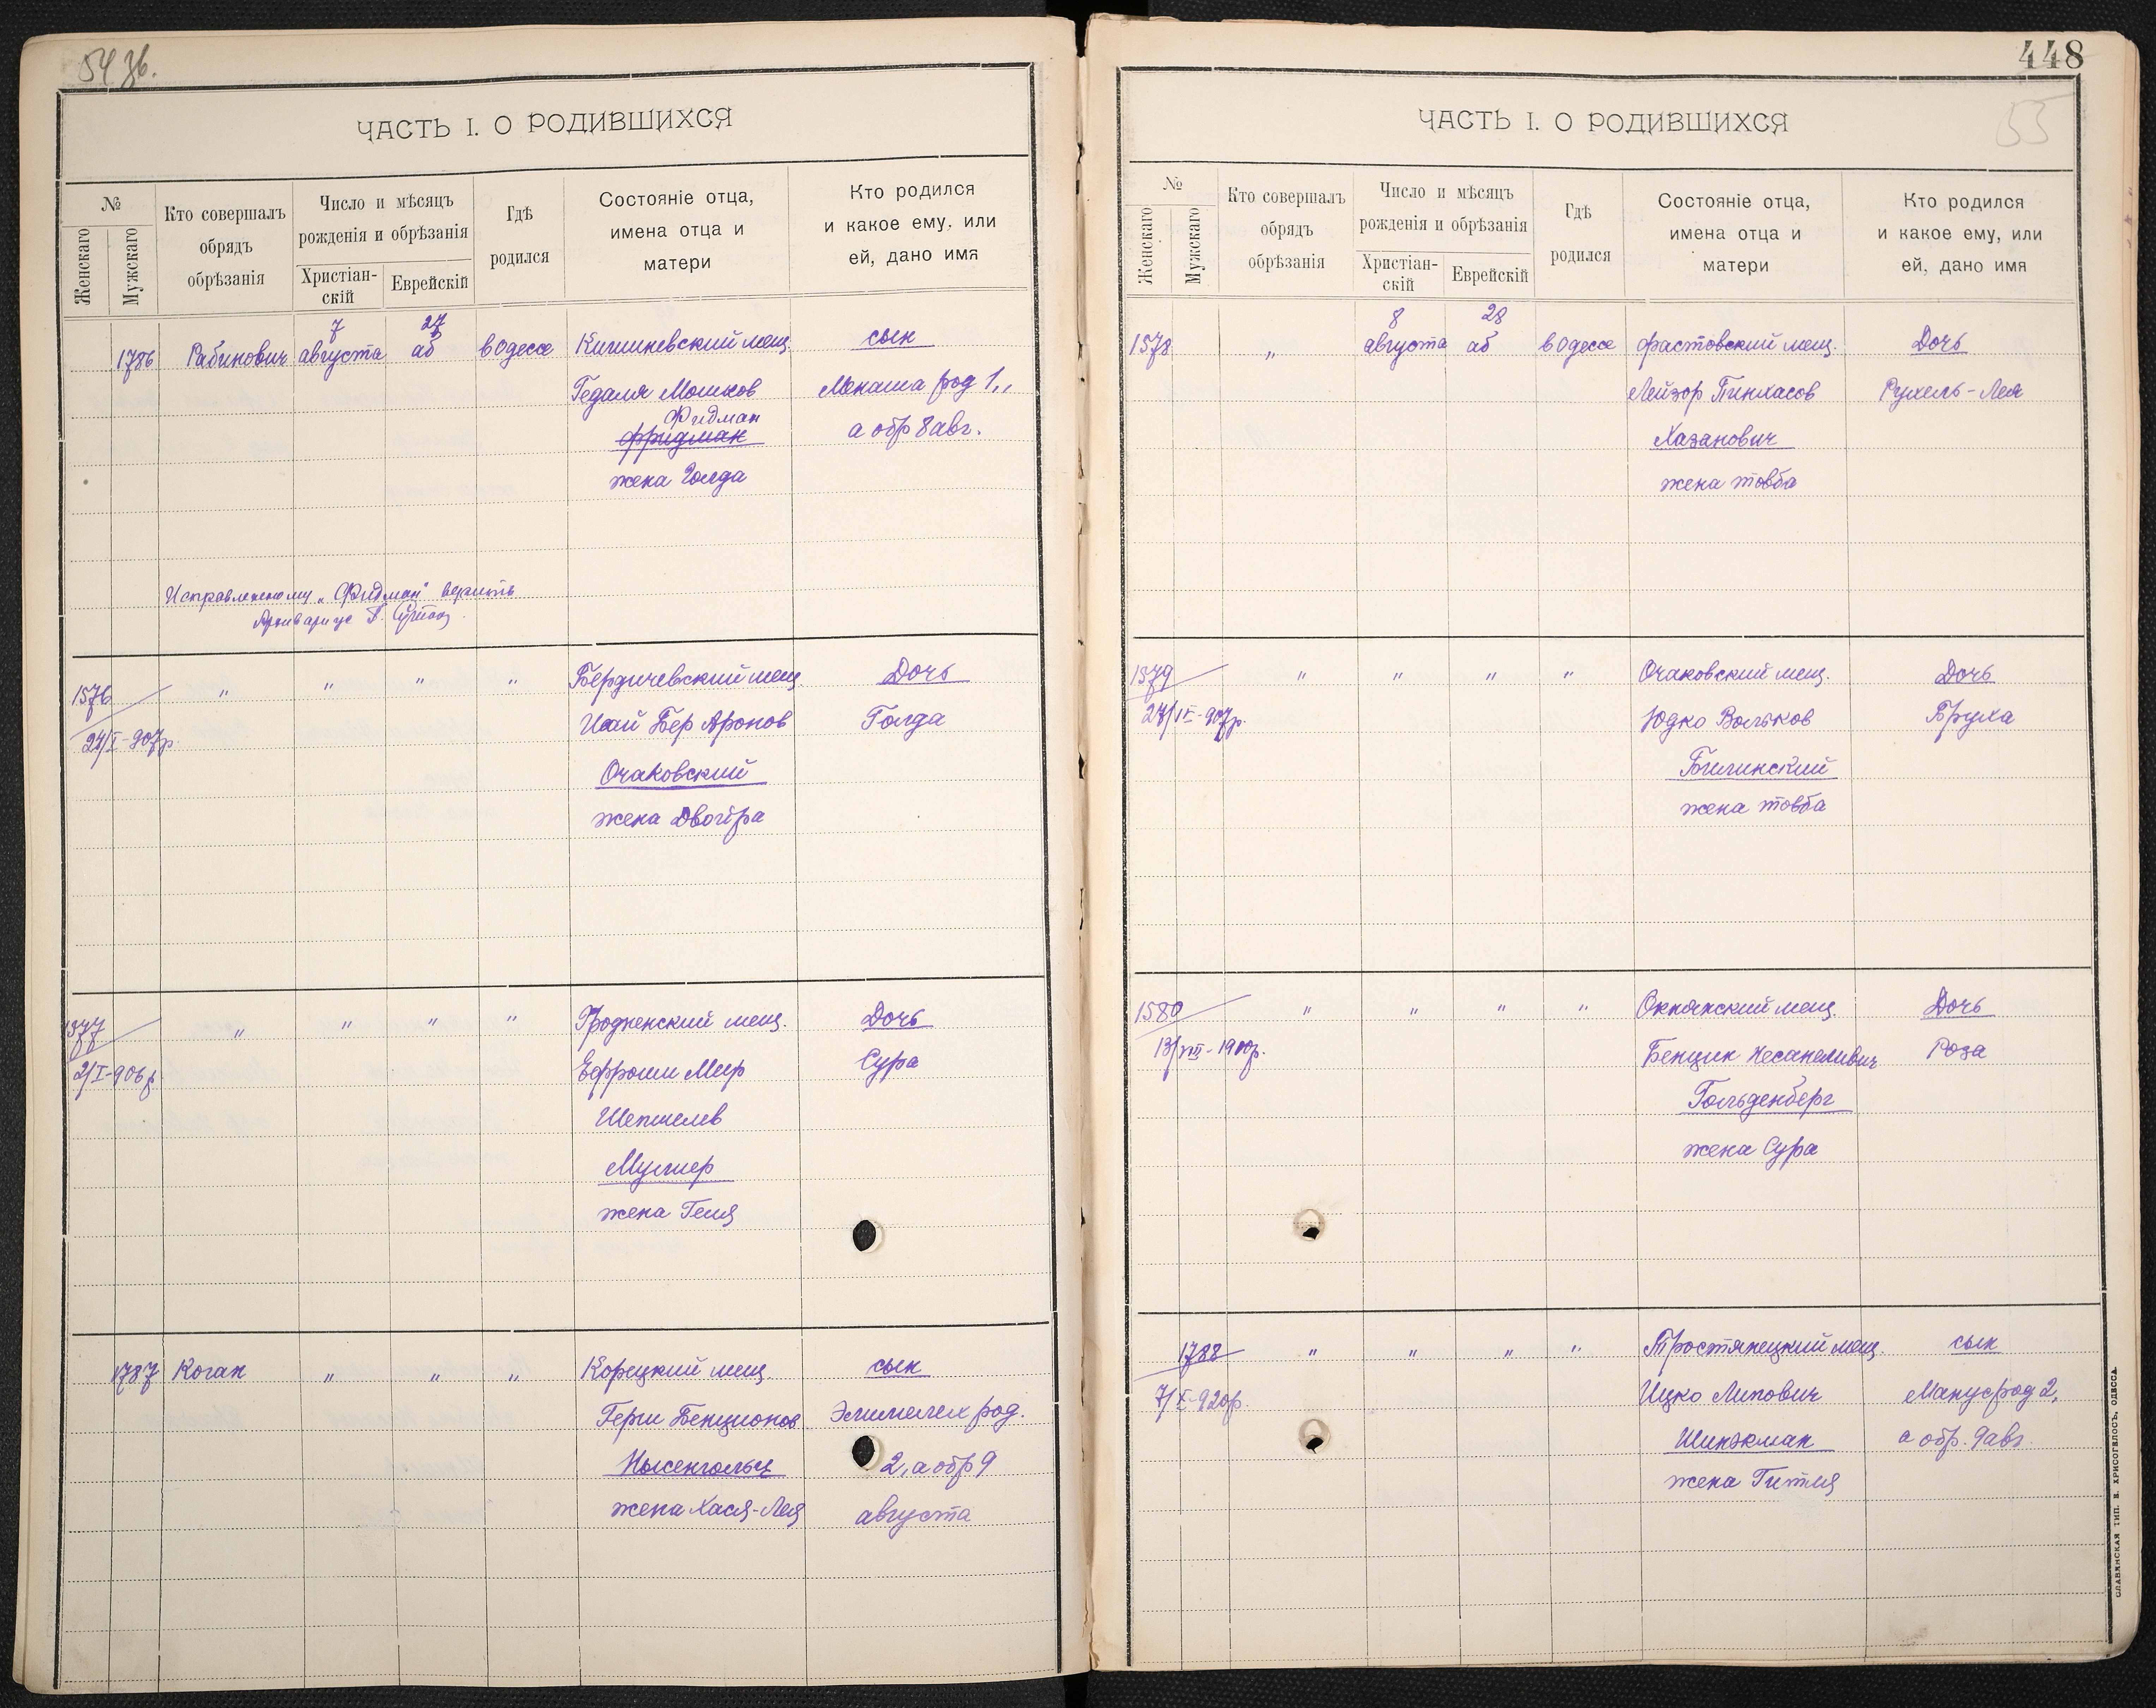 54 зв.
ЧАСТЬ I. О РОДИВШИХСЯ
№
Женскаго
Мужскаго
Кто совершалъ
обрядъ
обрѣзанія
Число и мѣсяцъ
рожденія и обрѣзанія
Христіан-
скій
Еврейскій
Гдѣ
родился
Состояніе отца,
имена отца и
матери
Кто родился
и какое ему, или
ей, дано имя
7 27
1786 Рабинович августа аб в Одессе Кишиневский мещ. сын
Гедаля Мошков Менаша род 1,,
Фидман
фридман а обр 8 авг.
жена Голда
Исправленному „Фидман" верить
Архивариус
1576 „ „ „ „ Бердичевский мещ. Дочь
24/I-907р Исай Бер Аронов Голда
Очаковский
жена Двойра
1577 „ „ „ „ Гродненский мещ. Дочь
2/I-906р Ефроим Меер Сура
Шепшелев
Мулер
жена Геня
1787 Коган „ „ „ Корецкий мещ. сын
Герш Бенционов Элимелех род.
Нысенгольц 2, а обр 9
жена Хася-Лея августа
448
55
ЧАСТЬ I. О РОДИВШИХСЯ
№
Женскаго
Мужскаго
Кто совершалъ
обрядъ
обрѣзанія
Число и мѣсяцъ
рожденія и обрѣзанія
Христіан-
скій
Еврейскій
Гдѣ
родился
Состояніе отца,
имена отца и
матери
Кто родился
и какое ему, или
ей, дано имя
8 28
1578 „ августа аб в Одессе фастовский мещ. Дочь
Лейзор Пинхасов Рухель-Лея
Хазанович
жена товба
1579 „ „ „ „ Очаковский мещ. Дочь
27/IX-907р. Юдко Вольков Бруха
Билинский
жена товба
1580 „ „ „ „ Окнянский мещ. Дочь
13/VIII-1910р. Бенцин Несанелевич Роза
Гольденберг
жена Сура
1788 „ „ „ „ Тростянецкий мещ. сын
7/X-920р. Ицко Липович Манус род 2,
Шинкман а обр. 9 авг.
жена Гитля
СЛАВЯНСКАЯ ТИП. Е. ХРИСОГЕЛОСЪ, ОДЕССА.